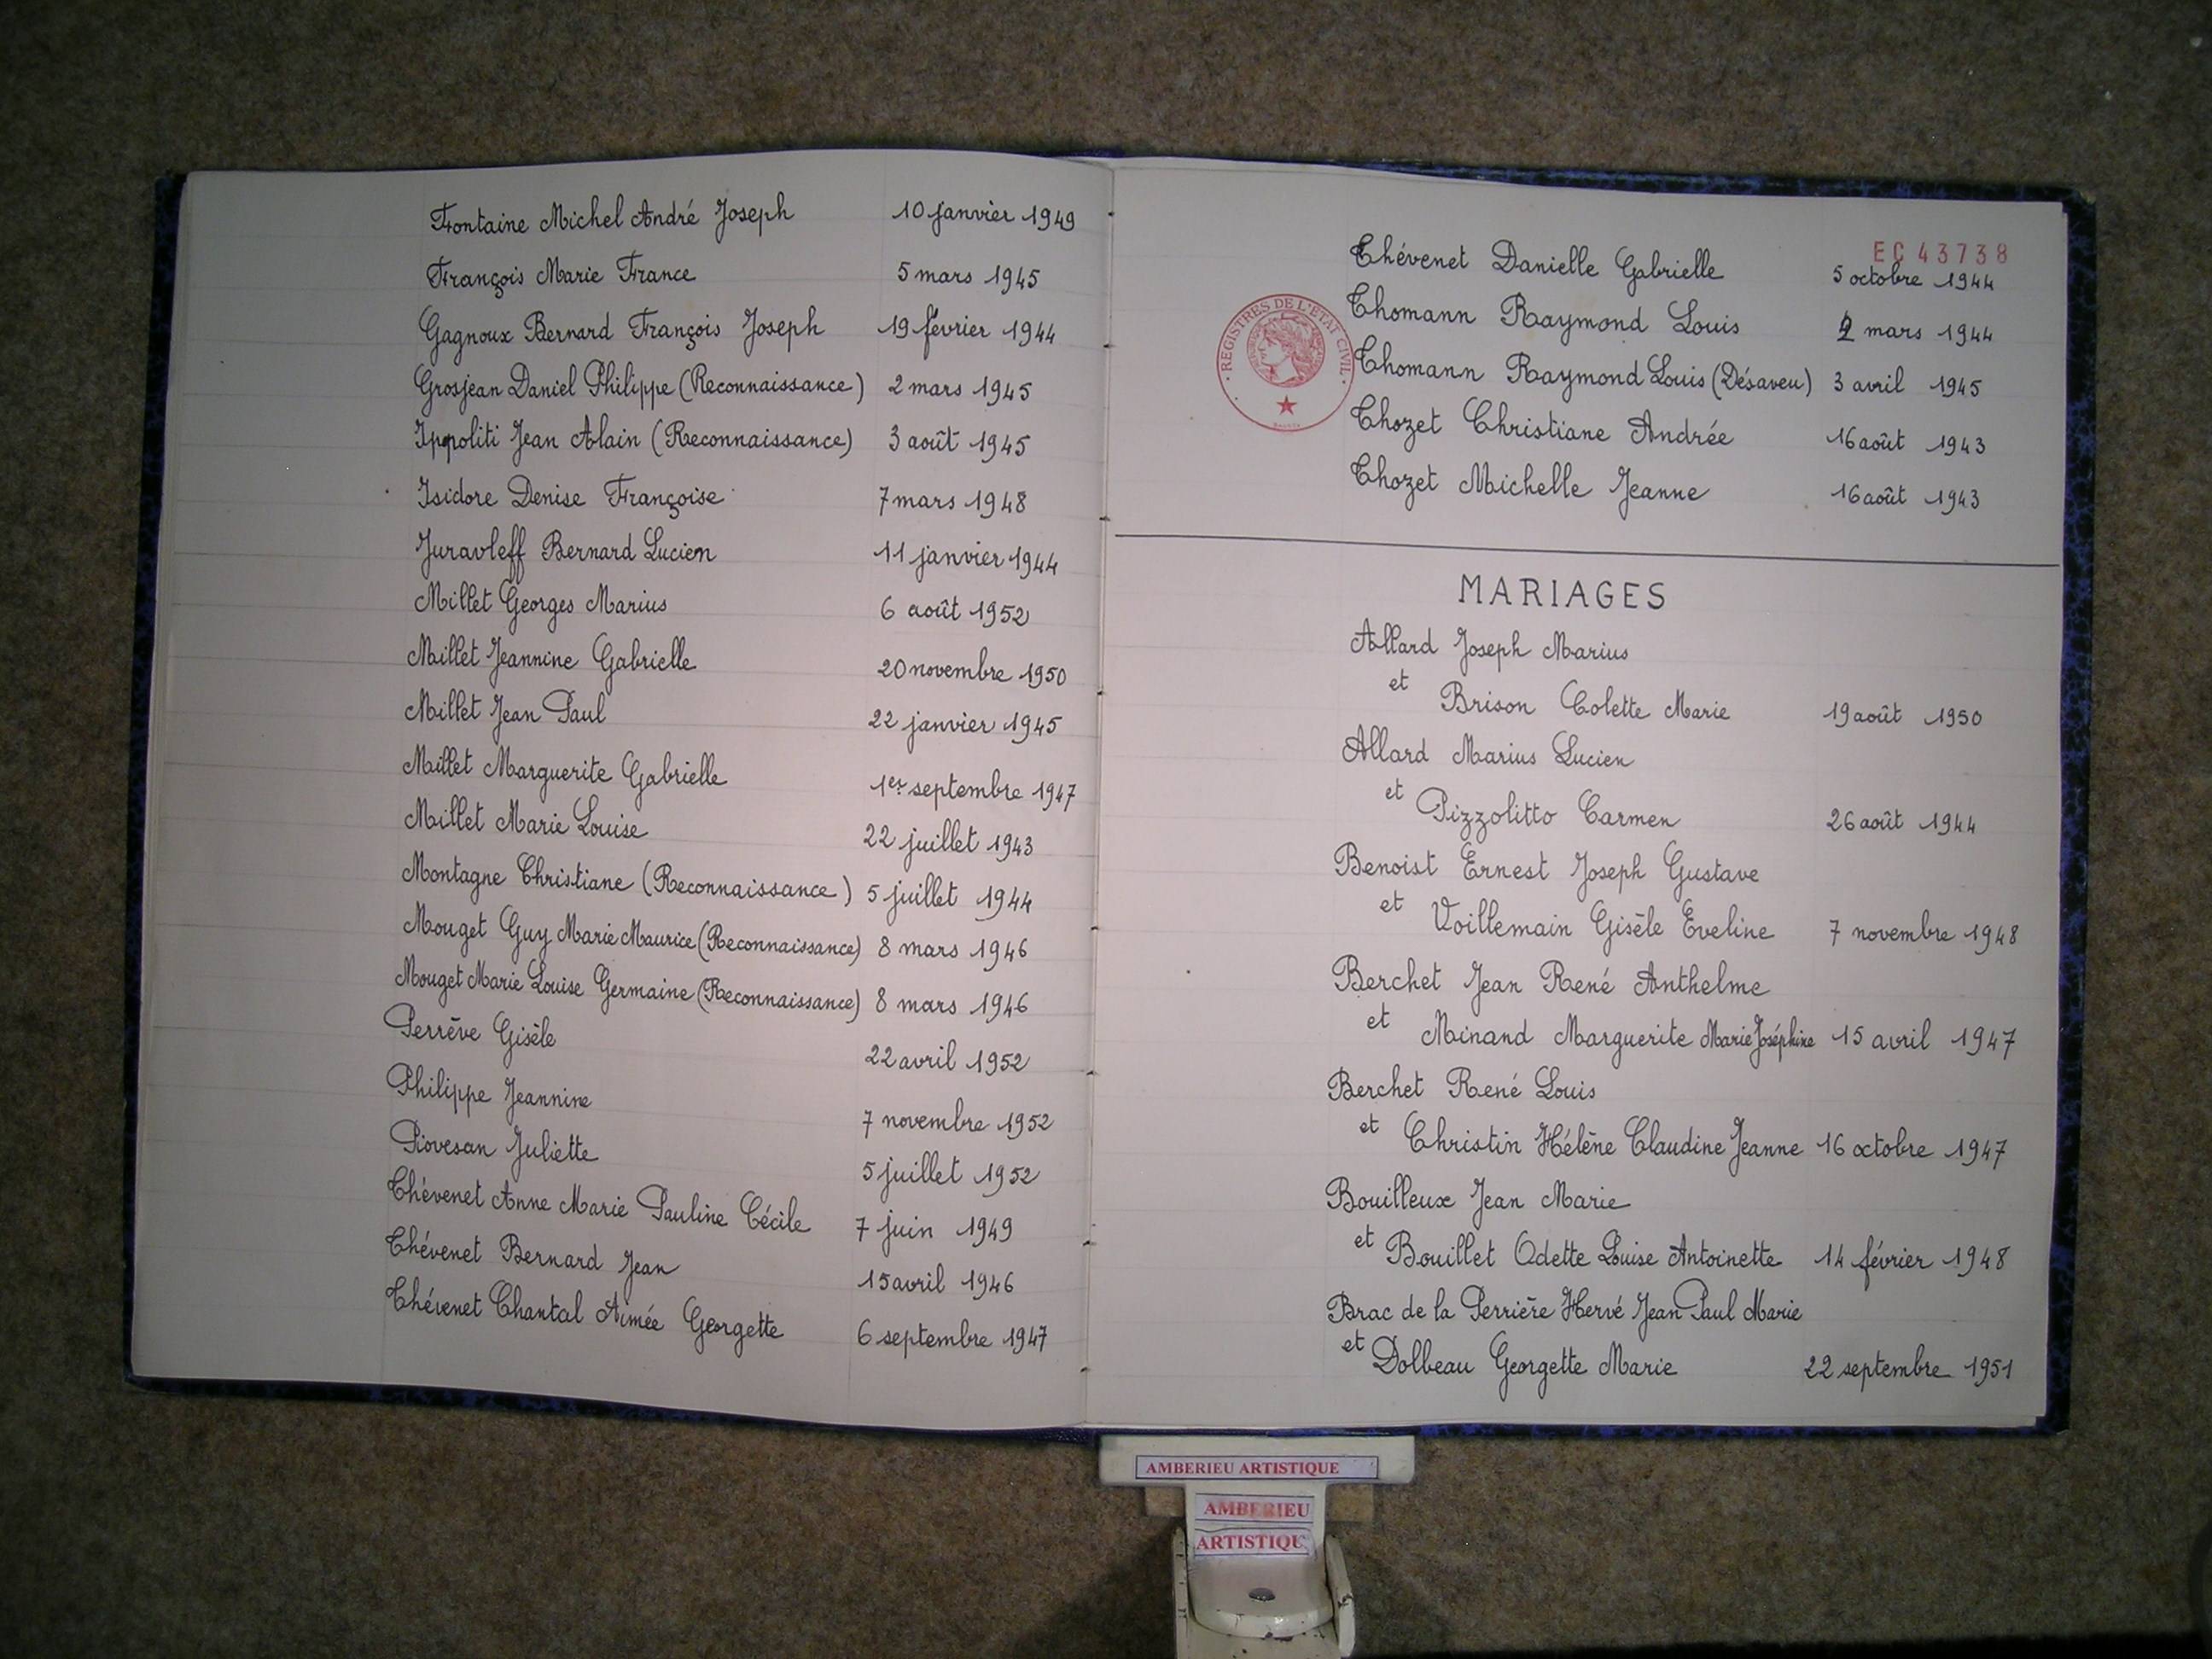 Fontaine Michel André Joseph 10 janvier 1949
François Marie France 5 mars 1945
Gagnoux Bernard François Joseph 19 février 1944
Grosjean Daniel Philippe (Reconnaissance) 2 mars 1945
Ippoliti Jean Alain (Reconnaissance) 3 août 1945
Isidore Denise Françoise 7 mars 1948
Juravleff Bernard Lucien 11 janvier 1944
Millet Georges Marius 6 août 1952
Millet Jeannine Gabrielle 20 novembre 1950
Millet Jean Paul 22 janvier 1945
Millet Marguerite Gabrielle 1er septembre 1947
Millet Marie Louise 22 juillet 1943
Montagne Christiane (Reconnaissance) 5 juillet 1944
Mouget Guy Marie Maurice (Reconnaissance) 8 mars 1946
Mouget Marie Louise Germaine (Reconnaissance) 8 mars 1946
Perrève Gisèle 22 avril 1952
Philippe Jeannine 7 novembre 1952
Piovesan Juliette 5 juillet 1952
Thévenet Anne Marie Pauline Cécile 7 juin 1949
Thévenet Bernard Jean 15 avril 1946
Thévenet Chantal Aimée Georgette 6 septembre 1947
EC 43738
Thévenet Danielle Gabrielle 5 octobre 1944
REGISTRES DE L'ETAT CIVIL
Thomann Raymond Louis 2 mars 1944
Thomann Raymond Louis (Désaveu) 3 avril 1945
Thozet Christiane Andrée 16 août 1943
Thozet Michelle Jeanne 16 août 1943
MARIAGES
Allard Joseph Marius
et Brison Colette Marie 19 août 1950
Allard Marius Lucien
et Pizzolitto Carmen 26 août 1944
Benoist Ernest Joseph Gustave
et Voillemain Gisèle Eveline 7 novembre 1948
Berchet Jean René Anthelme
et Minand Marguerite Marie Joséphine 15 avril 1947
Berchet René Louis
et Christin Hélène Claudine Jeanne 16 octobre 1947
Bouilleux Jean Marie
et Bouillet Odette Louise Antoinette 14 février 1948
Brac de la Perrière Hervé Jean Paul Marie
et Dolbeau Georgette Marie 22 septembre 1951
AMBERIEU ARTISTIQUE
AMBERIEU
ARTISTIQU